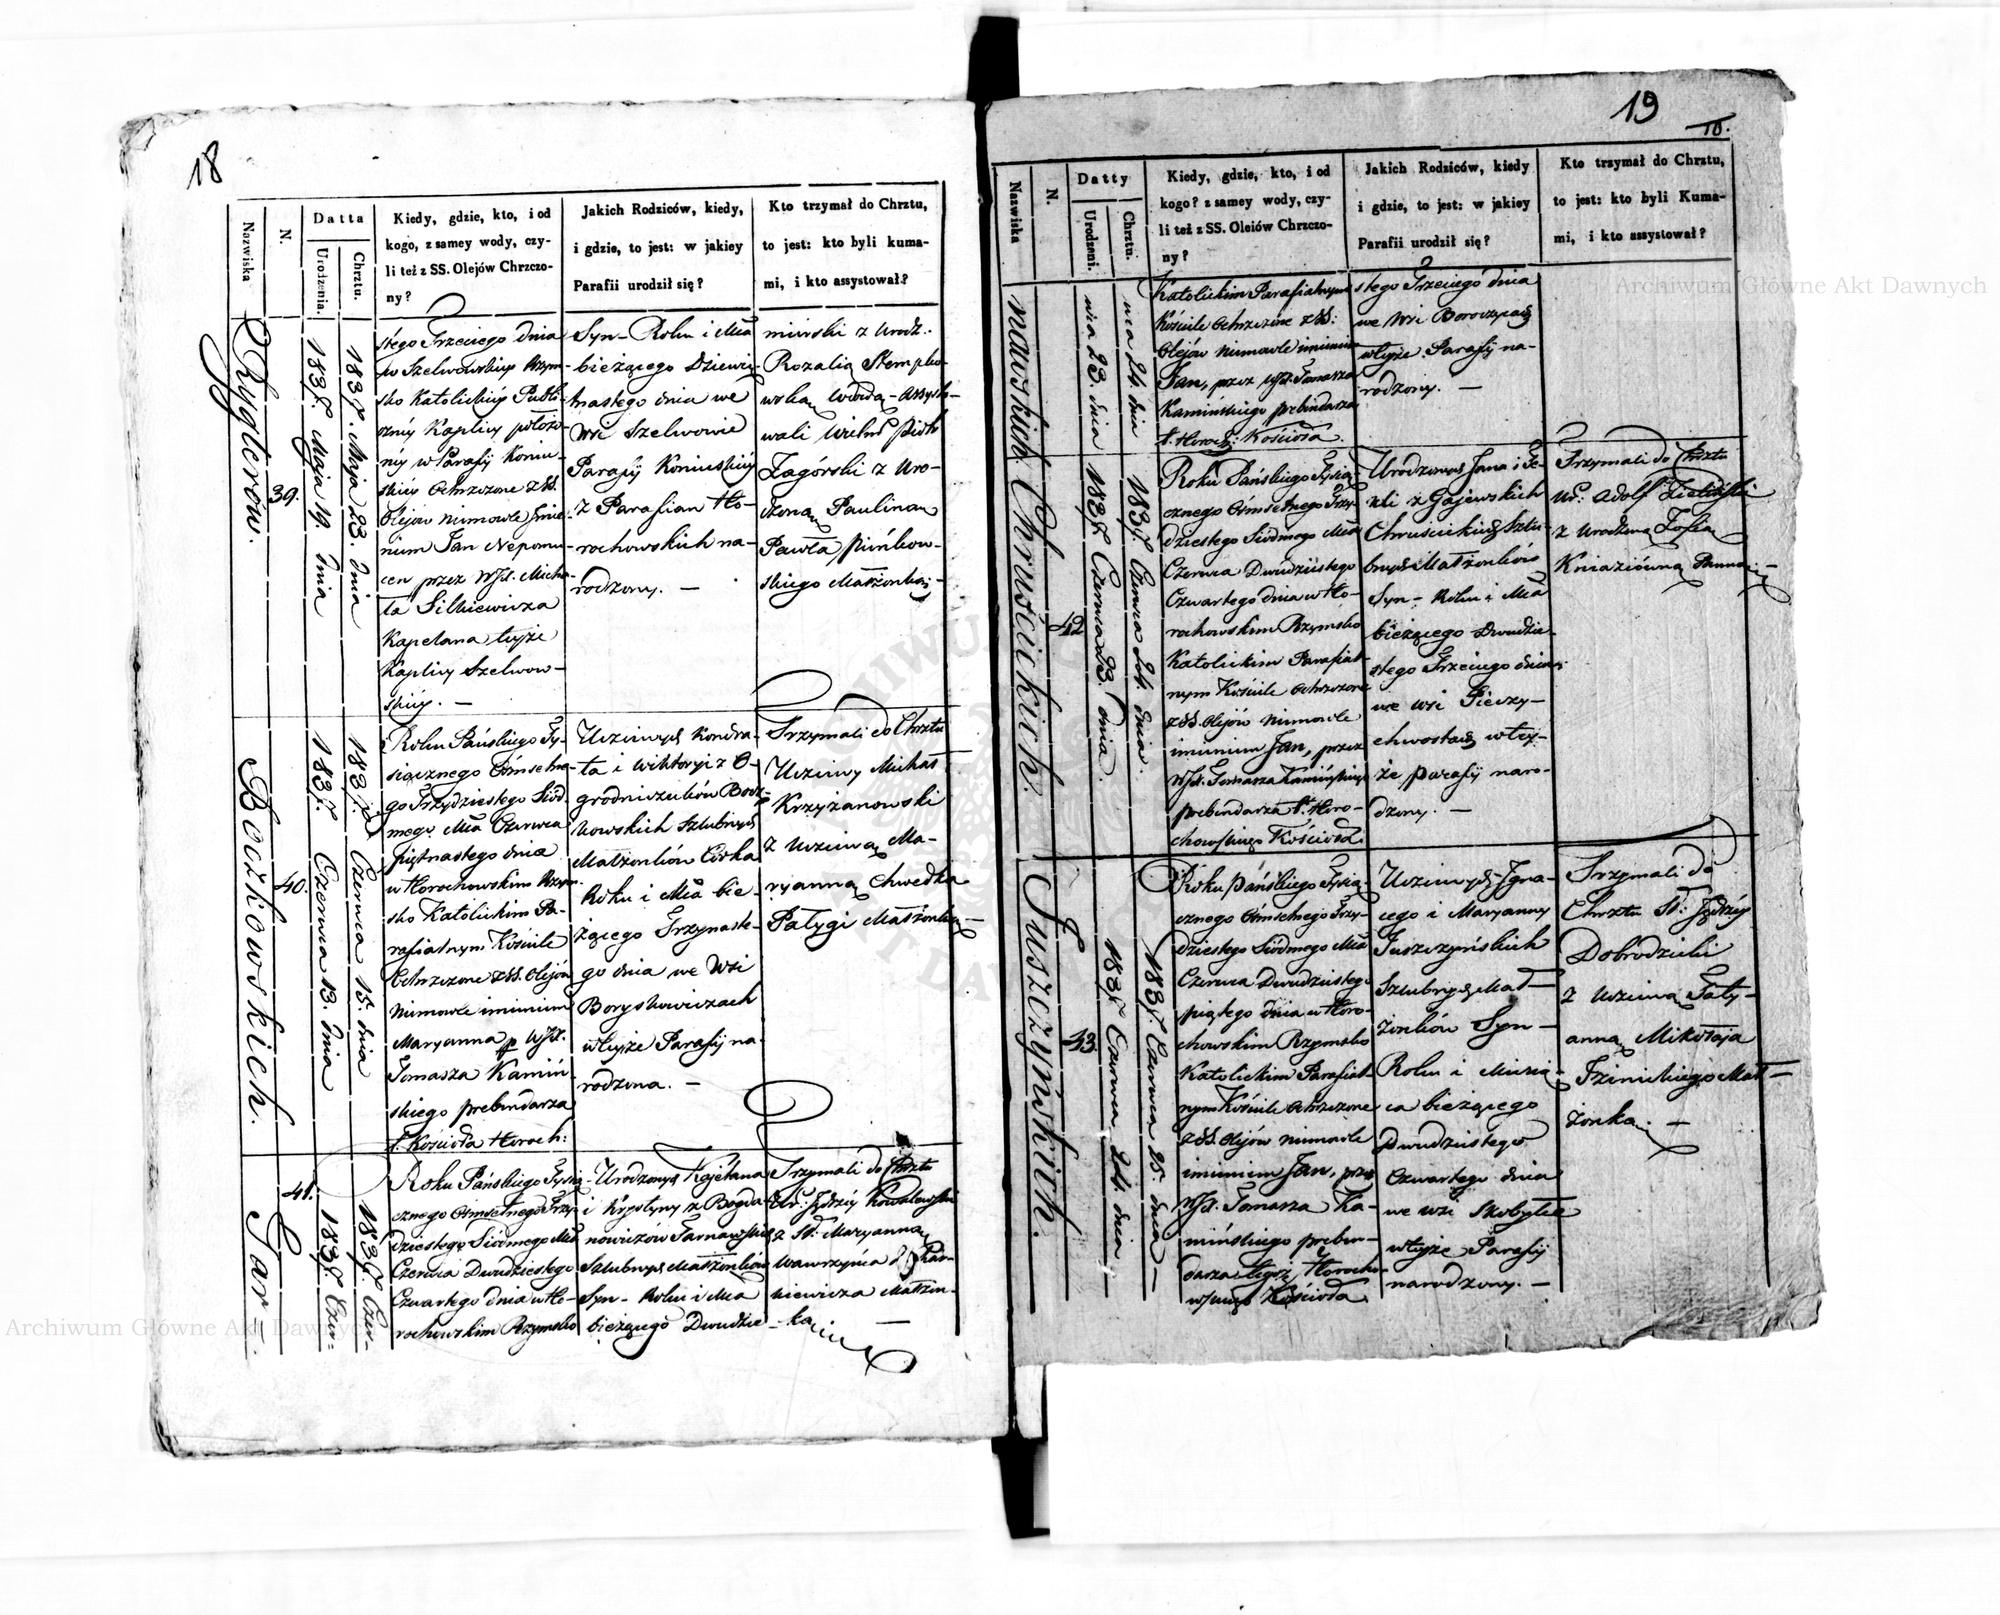 18
Nazwiska
N.
Datta
Urodzenia.
Chrztu.
Kiedy, gdzie, kto, i od
kogo, z samey wody, czy-
li też z SS. Olejów Chrzczo-
ny?
Jakich Rodziców, kiedy,
i gdzie, to jest: w jakiey
Parafii urodził się?
Kto trzymał do Chrztu,
to jest: kto byli kuma-
mi, i kto assystował?
Ryglerów.
39.
1837. Maja 19. dnia
1837. Maja 23. dnia
stego Trzeciego dnia
w Szelwowskiey Rzym-
sko Katolickiey Publi-
czney Kaplicy położo-
ney w Parafij Koniu-
skiey Ochrzczone z SS.
Olejów niemowle Imie-
niem Jan Nepomu-
cen przez WJX. Micha-
ła Silkiewicza
Kapelana teyże
Kaplicy Szelwow-
skiey. —
Syn — Roku i Mca
bieżącego Dziewię-
tnastego dnia we
Wsi Szelwowie
Parafij Koniuskiey
z Parafian Ho-
rochowskich na-
rodzony. —
minski z Urodz.
Rozalią Stempko-
wską Wdową — Assysto-
wali Wielm. Piotr
Zagórski z Uro-
dzoną Pauliną
Pawła
skiego Małżonką. —
Boczkowskich.
40.
1837. Czerwca 13. dnia
1837. Czerwca 15. dnia
Roku Pańskiego Ty-
siącznego Ośmsetne-
go Trzydziestego Siód-
mego Mca Czerwca
piętnastego dnia
w Horochowskim Rzym-
sko Katolickim Pa-
rafialnym Kościele
Ochrzczone z SS. Olejów
niemowle imieniem
Maryanna p. WJX.
Tomasza Kamiń-
skiego prebendarza
t. Kościoła Horoch:
Uczciwych Kondra-
ta i Wiktoryi z O-
grodniczuków Bocz-
kowskich Szlubnych
Małżonków Córka
Roku i Mca bie-
żącego Trzynaste-
go dnia we Wsi
Boryskowiczach
w teyże Parafij na-
rodzona. —
Trzymali do Chrztu
Uczciwy Michał
Krzyżanowski
z Uczciwą Ma-
ryanną Chwedka
Pałygi Małżonką —
Tar =
41.
1837. Czer=
1837. Czer-
Roku Pańskiego Tysią-
cznego Ośmsetnego Trzy-
dziestego Siódmego Mca
Czerwca Dwudziestego
Czwartego dnia w Ho-
rochowskim Rzymsko
Urodzonych Kajetana
i Krystyny z Bogda-
nowiczów Tarnawskich
Szlubnych Małżonków
Syn — Roku i Mca
bieżącego Dwudzie-
Trzymali do Chrztu
Ur: Jędrzey Kowalewski
z Maryanną
Wawrzyńca
niewicza Małżon-
ką —
19
10.
Nazwiska
N.
Datty
Urodzeni.
Chrztu.
Kiedy, gdzie, kto, i od
kogo? z samey wody, czy-
li też z SS. Oleiów Chrzczo-
ny?
Jakich Rodziców, kiedy
i gdzie, to jest: w jakiey
Parafii urodził się?
Kto trzymał do Chrztu,
to jest: kto byli Kuma-
mi, i kto assystował?
nawskich
wca 23. dnia
wca 24. dnia
Katolickim Parafialnym
Kościele Ochrzczone z SS:
Olejów niemowle imieniem
Jan, przez WJX. Tomasza
Kamińskiego prebendarza
t. Horoch: Kościoła.
stego Trzeciego dnia
we Wsi Boroczycach
w teyże Parafij na-
rodzony. —
Chruścickich.
42
1837 Czerwca 23. dnia.
1837. Czerwca 24. dnia.
Roku Pańskiego Tysią-
cznego Ośmsetnego Trzy-
dziestego Siódmego Mca
Czerwca Dwudziestego
Czwartego dnia w Ho-
rochowskim Rzymsko
Katolickim Parafial-
nym Kościele Ochrzczone
z SS. Olejów niemowle
imieniem Jan, przez
WJX. Tomasza Kamińskiego
prebendarza t. Horo-
chowskiego Kościoła.
Urodzonych Jana i Te-
kli z Gajewskich
Chruścickich Szlu-
bnych Małżonków
Syn — Roku i Mca
bieżącego Dwudzie-
stego Trzeciego dnia
we wsi Pieczy-
chwostach w tey-
że parafij naro-
dzony. —
Trzymali do Chrztu
Ur: Adolf Zieliński
z Urodzoną Zofią
Kniaziówną Panną. —
Juszczyńskich.
43.
1837 Czerwca 24. dnia
1837. Czerwca 25. dnia —
Roku Pańskiego Tysią-
cznego Ośmsetnego Trzy-
dziestego Siódmego Mca
Czerwca Dwudziestego
piątego dnia w Horo-
chowskim Rzymsko
Katolickim Parafial-
nym Kościele Ochrzczone
z SS. Olejów niemowle
imieniem Jan, przez
WJX. Tomasza Ka-
mińskiego preben-
darza tegoż Horocho-
wskiego Kościoła
Uczciwych Igna-
cego i Maryanny
Juszczyńskich
Szlubnych Mał-
żonków Syn —
Roku i Miesią-
ca bieżącego
Dwudziestego
Czwartego dnia
we wsi Skobełce
w teyże Parafij
narodzony. —
Trzymali do
Chrztu Sł: Jędrzey
Dobrodzicki
z Uczciwą Taty-
anną Mikołaja
Małżonką. —
Archiwum Główne Akt Dawnych
Archiwum Główne Akt Dawnych